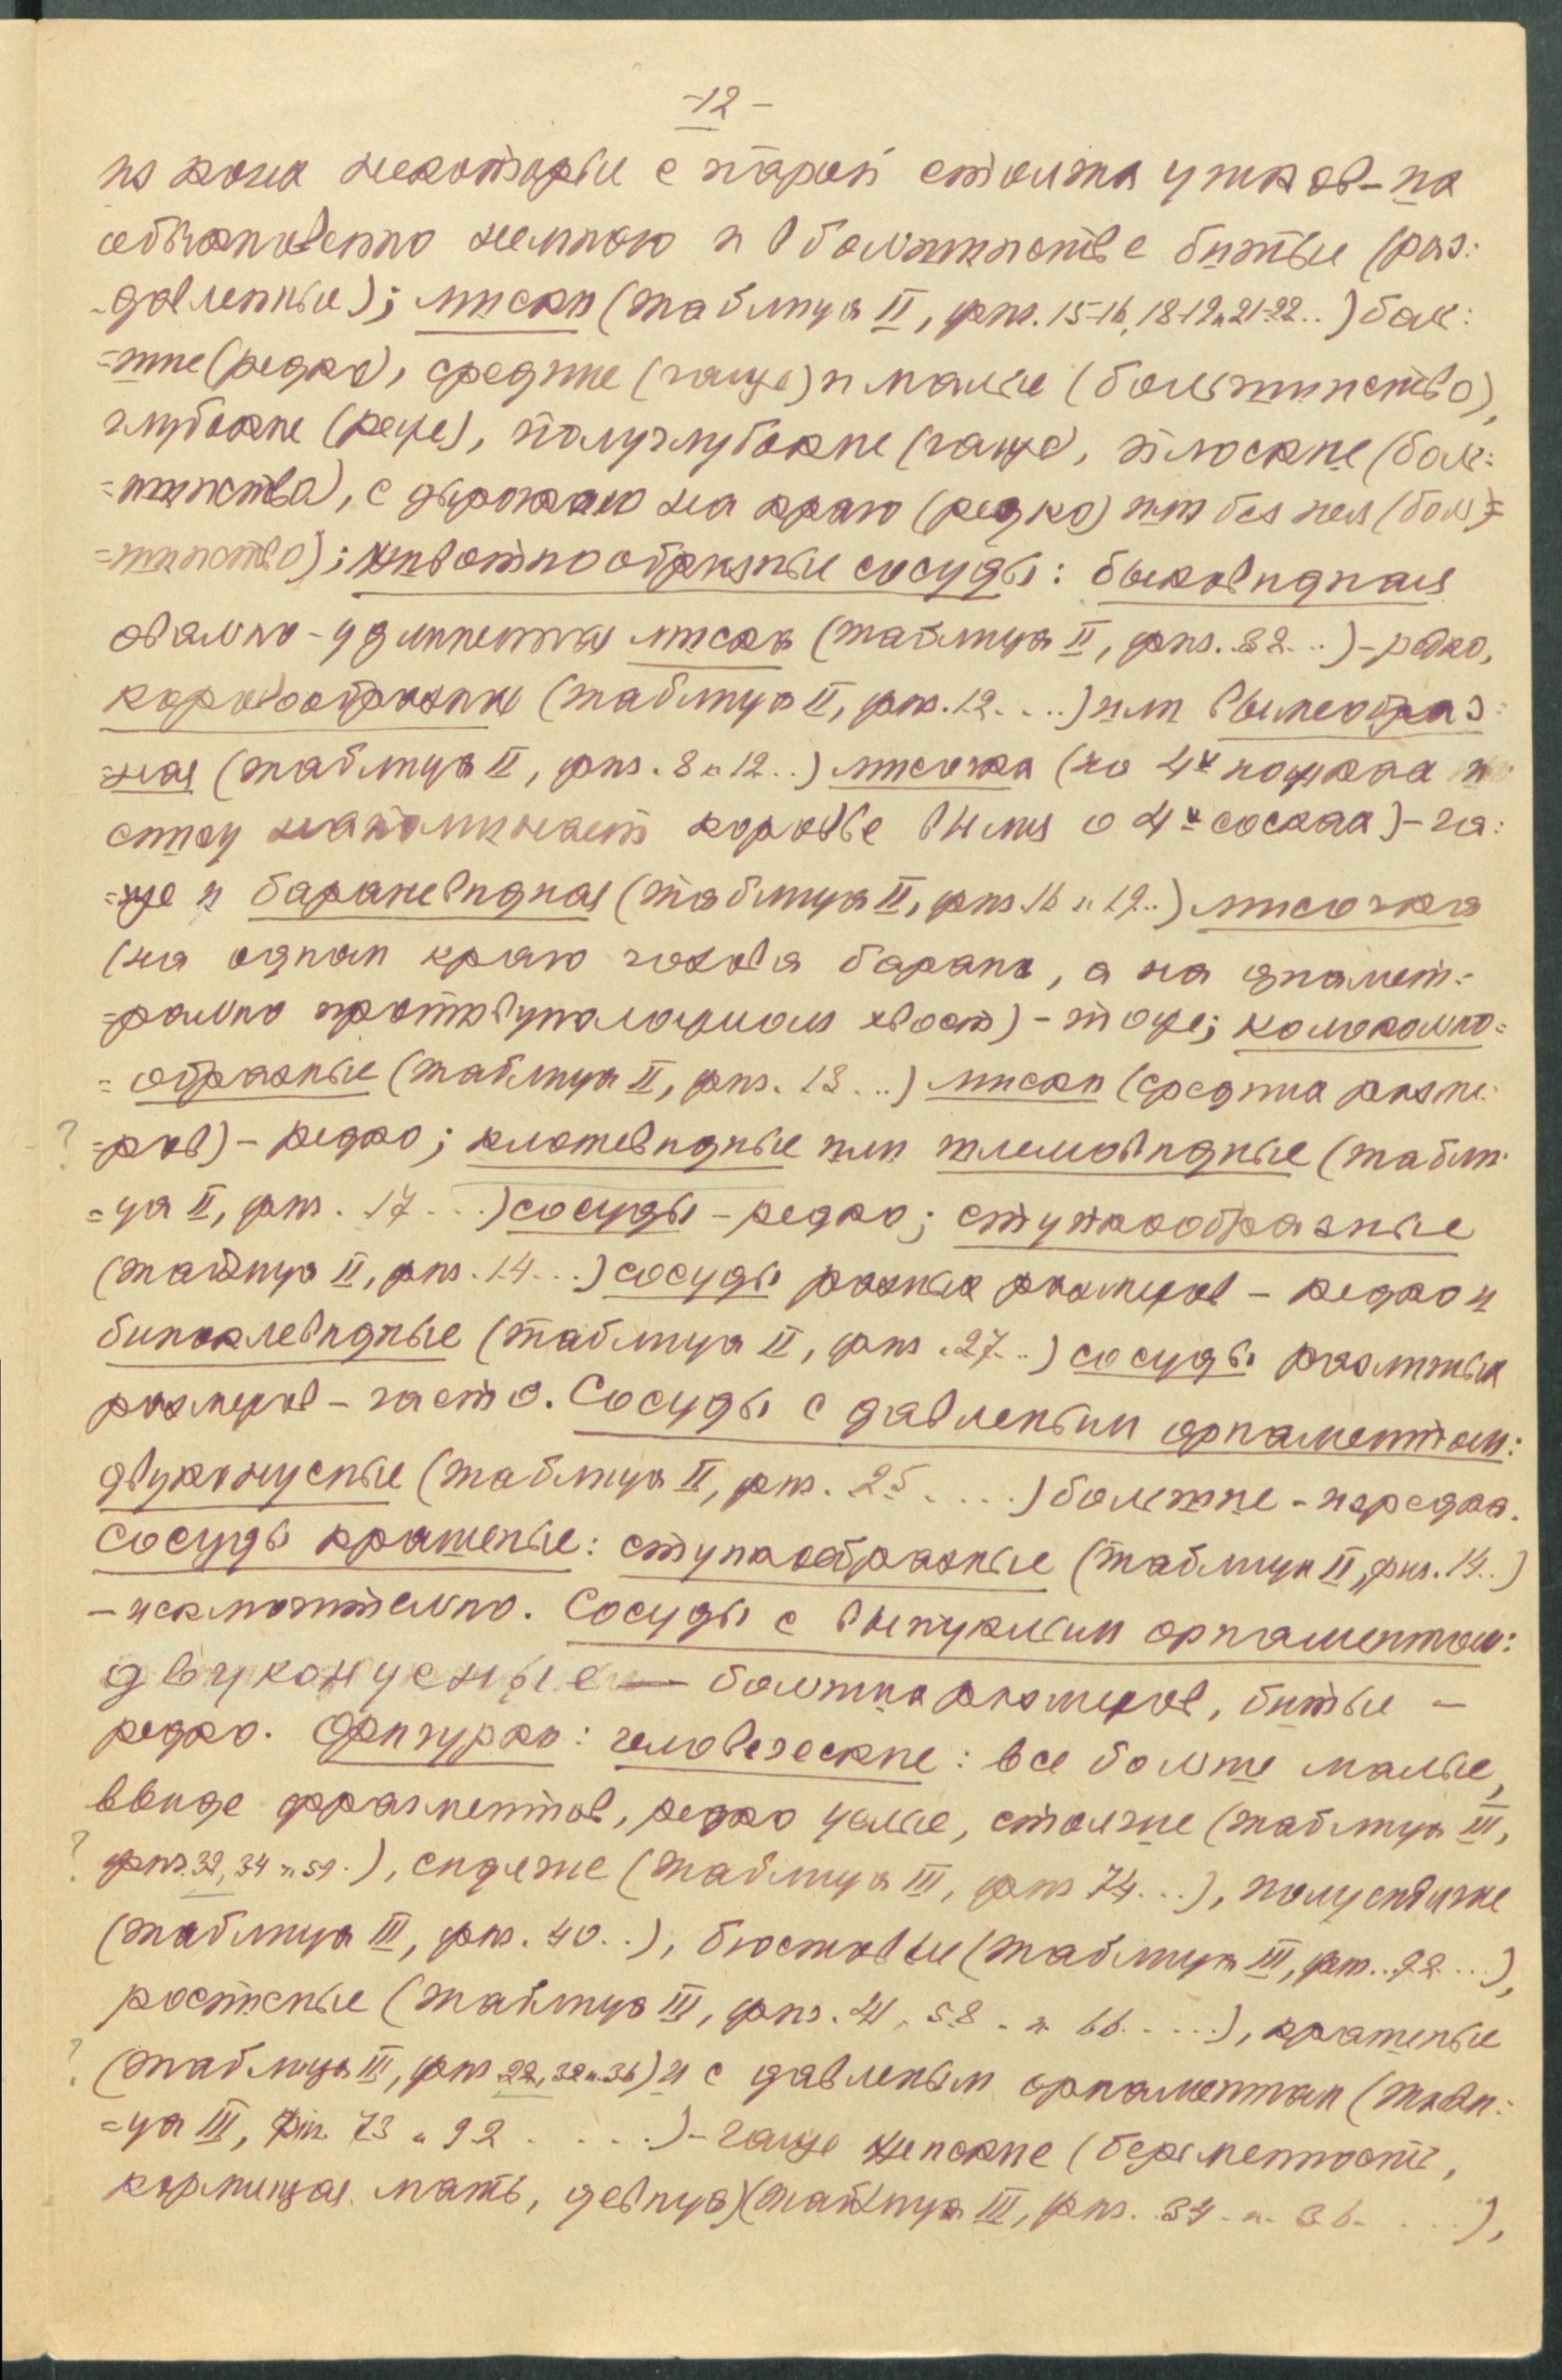 -12-
из коих некоторые с парой стоячих ушков - их
обыкновенно немного и в большинстве битые (раз:
-давленные); миски (таблица II, рис. 15-16, 18-19 и 21-22..) боль:
=шие (редко), средние (чаще) и малые (большинство),
глубокие (реже), полуглубокие (чаще), плоские (боль:
=шинство), с дырочкою на краю (редко) или без нея (боль=
=шинство); животнообразные сосуды: быковидная
овально-удлиненная миска (таблица II, рис. 32...) - редко,
коровообразные (таблица II, рис. 12....) или вымеобраз:
=ная (таблица II, рис. 8 и 12..) мисочка (по 4х ножках и
снизу напоминает коровье вымя о 4х сосках) - ча:
=ще и бараневидная (таблица II, рис. 16 и 19..) мисочка
(на одном краю голова барана, а на диамет:
=рально противуположном хвост) - тоже; колокольно=
=образные (таблица II, рис. 13...) миски (средних разме:
? =ров) - редко; клошевидные или шлемовидные (табли:
=ца II, рис. 17...) сосуды - редко; ступкообразные
(таблица II, рис. 14...) сосуды разных размеров - редко и
биноклевидные (таблица II, рис. 27..) сосуды различных
размеров - часто. Сосуды с давленым орнаментом:
двуконусные (таблица II, рис. 25.....) большие - изредка.
Сосуды крашеные: ступкообразные (таблица II, рис. 14..)
- исключительно. Сосуды с выпуклым орнаментом:
двуконусные — больших размеров, битые -
редко. Фигурки: человеческие: все больше малые,
ввиде фрагментов, редко целые, стоячие (таблица III,
? рис. 32, 34 и 59.), сидячие (таблица III, рис 74...), полусидячие
(таблица III, рис. 40..), бюстовые (таблица III, рис. 92...),
(таблица III, рис. 41, 58 и 66.....), крашеные
? (таблица III, рис 22, 32 и 36) и с давленым орнаментом (табли:
=ца III, рис. 73 и 92.....) - чаще женские (беременность,
кормящая мать, девица) (таблица III, рис. 34 и 36....),